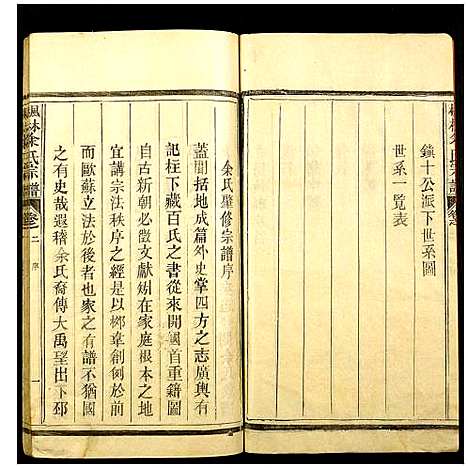 鎮十公派下世系圖
世系一覽表
余氏肇修宗譜序
蓋聞括地成篇外史掌四方之志廣輿有
記柱下藏百氏之書從來開國首重籍圖
自古新朝必徵文獻矧在家庭根本之地
宜講宗法秩序之經是以鄉韋創例於前
而歐蘇立法於後者也家之有譜不猶國
之有史哉遐稽余氏裔傳大禹望出下邳
楓林余氏宗譜
卷二
序
一